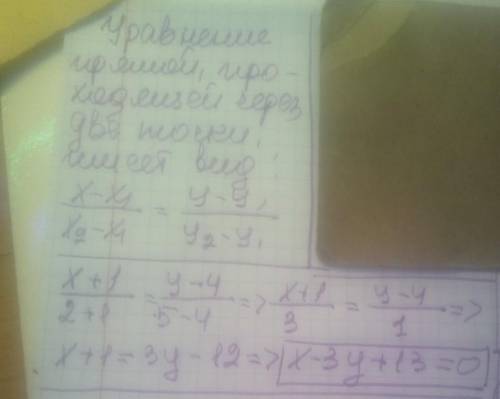 Уравнение
прямой, про-
ходящей через
две точки,
имеет вид:
x-x₁/x₂-x₁ = y-y₁/y₂-y₁
x+1/2+1 = y-4/5-4 => x+1/3 = y-4/1 =>
x+1=3y-12=> x-3y+13=0